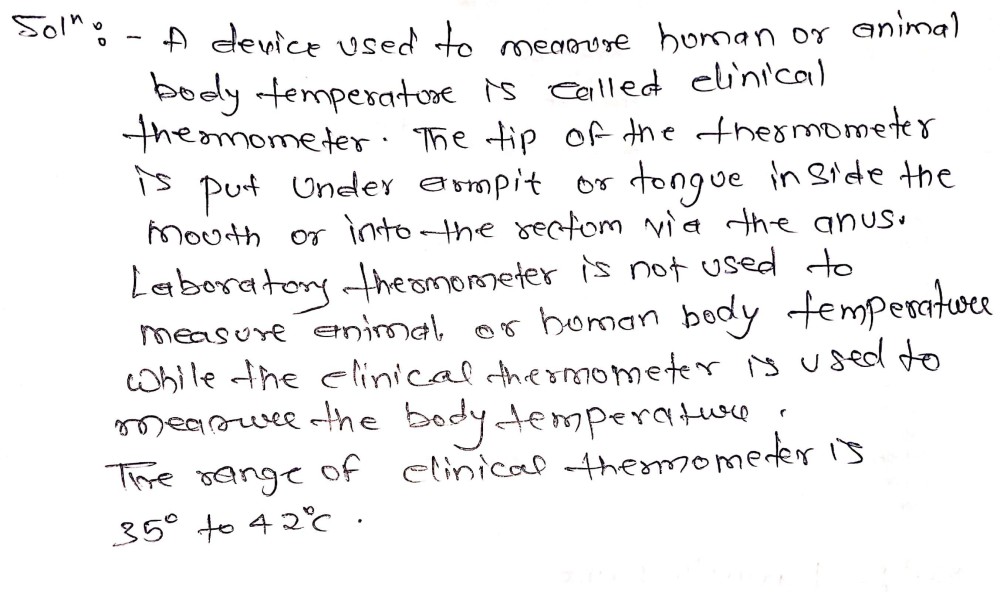 Solⁿ: - A device used to measure human or animal
body temperature is called clinical
thermometer. The tip of the thermometer
is put under armpit or tongue inside the
mouth or into the rectum via the anus.
Laboratory thermometer is not used to
measure animal or human body temperature
while the clinical thermometer is used to
measure the body temperature.
The range of clinical thermometer is
35° to 42°C.